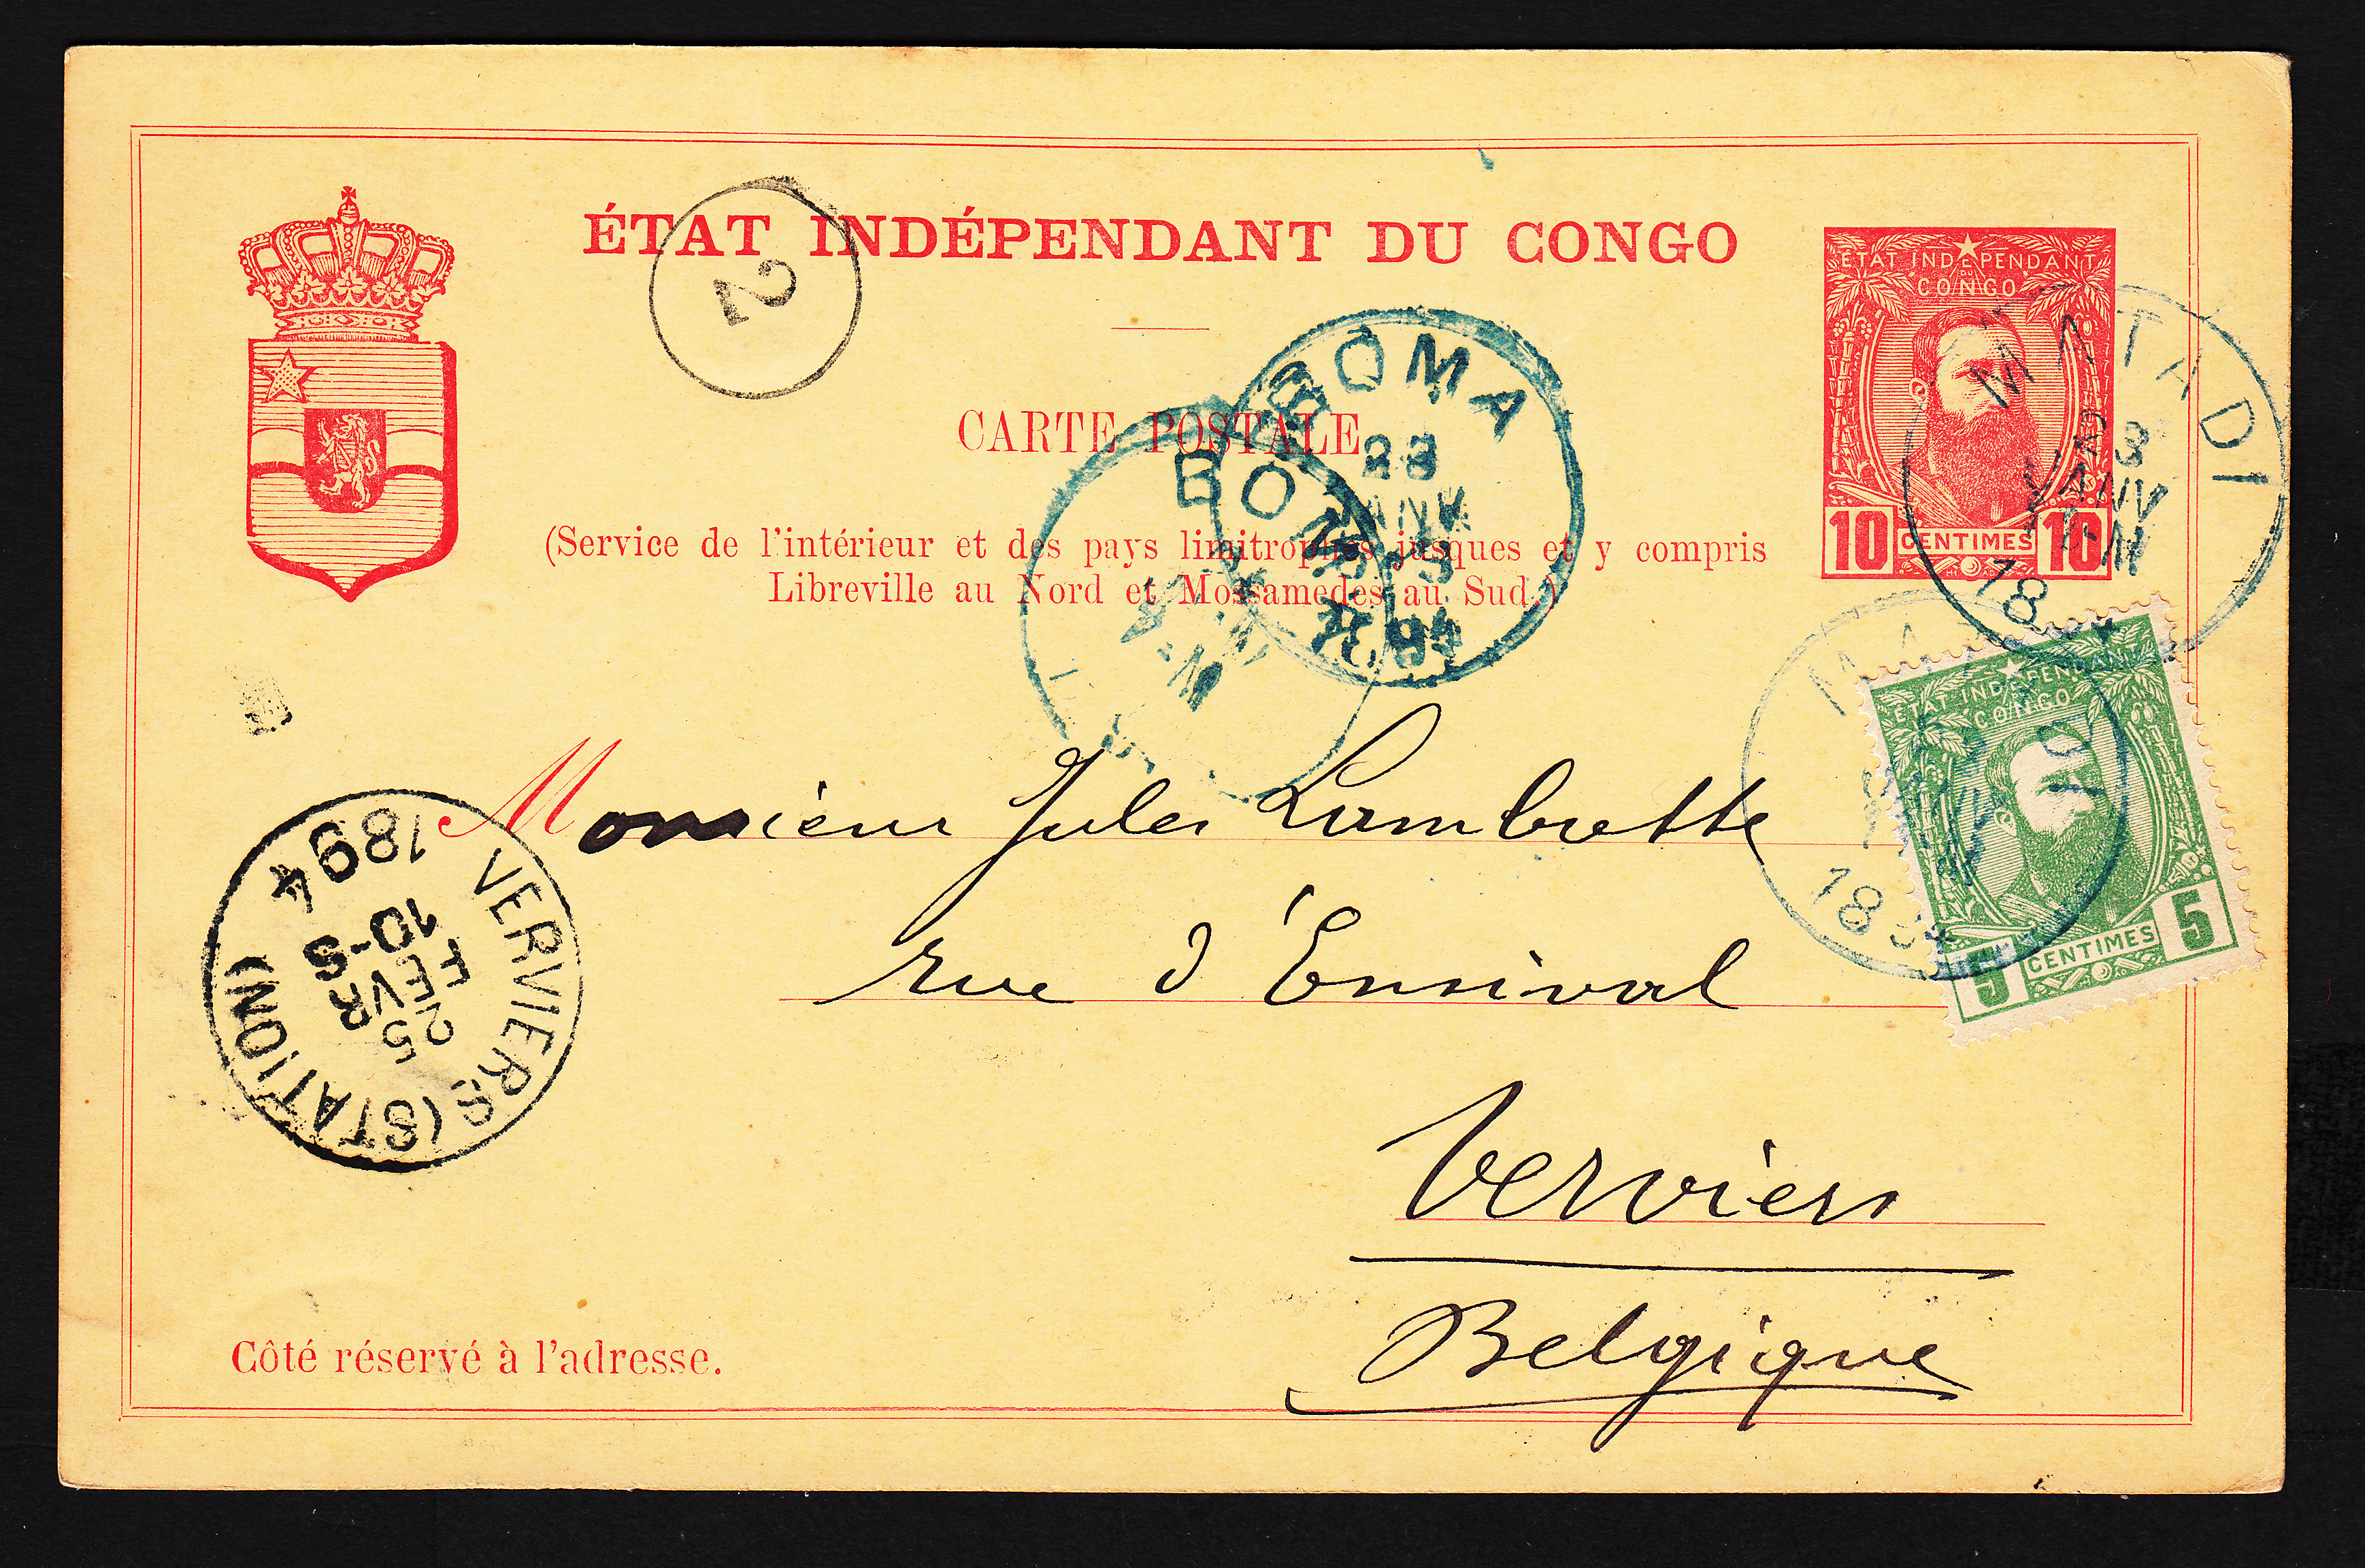 ÉTAT INDÉPENDANT DU CONGO
2
ÉTAT INDÉPENDANT
DU
CONGO
10 CENTIMES 10
MATADI
JANV
18
CARTE POSTALE
BOMA
23
94
BOMA
(Service de l'intérieur et des pays limitrophes jusques et y compris
Libreville au Nord et Mossamedes au Sud.)
ÉTAT INDÉPENDANT
DU
CONGO
5 CENTIMES 5
1894
Monsieur Jules Lambrette
rue d'Ensival
Verviers
Belgique
VERVIERS (STATION)
25
FEVR
10-S
1894
Côté réservé à l'adresse.